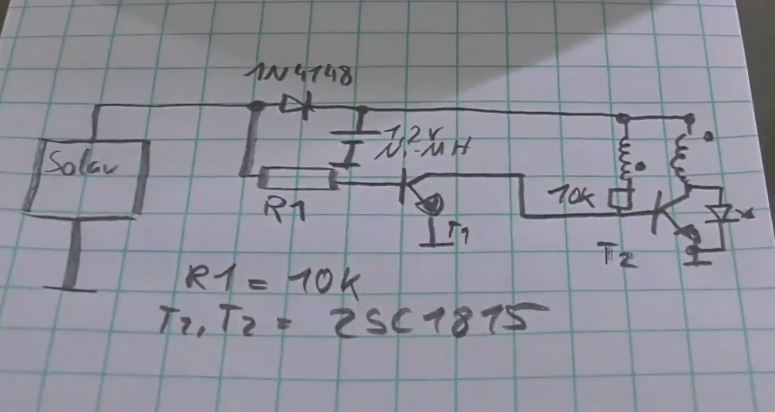 1N4148
Solar
1,2V
Ni-MH
R1
T1
10k
T2
R1 = 10k
T1, T2 = 2SC1815